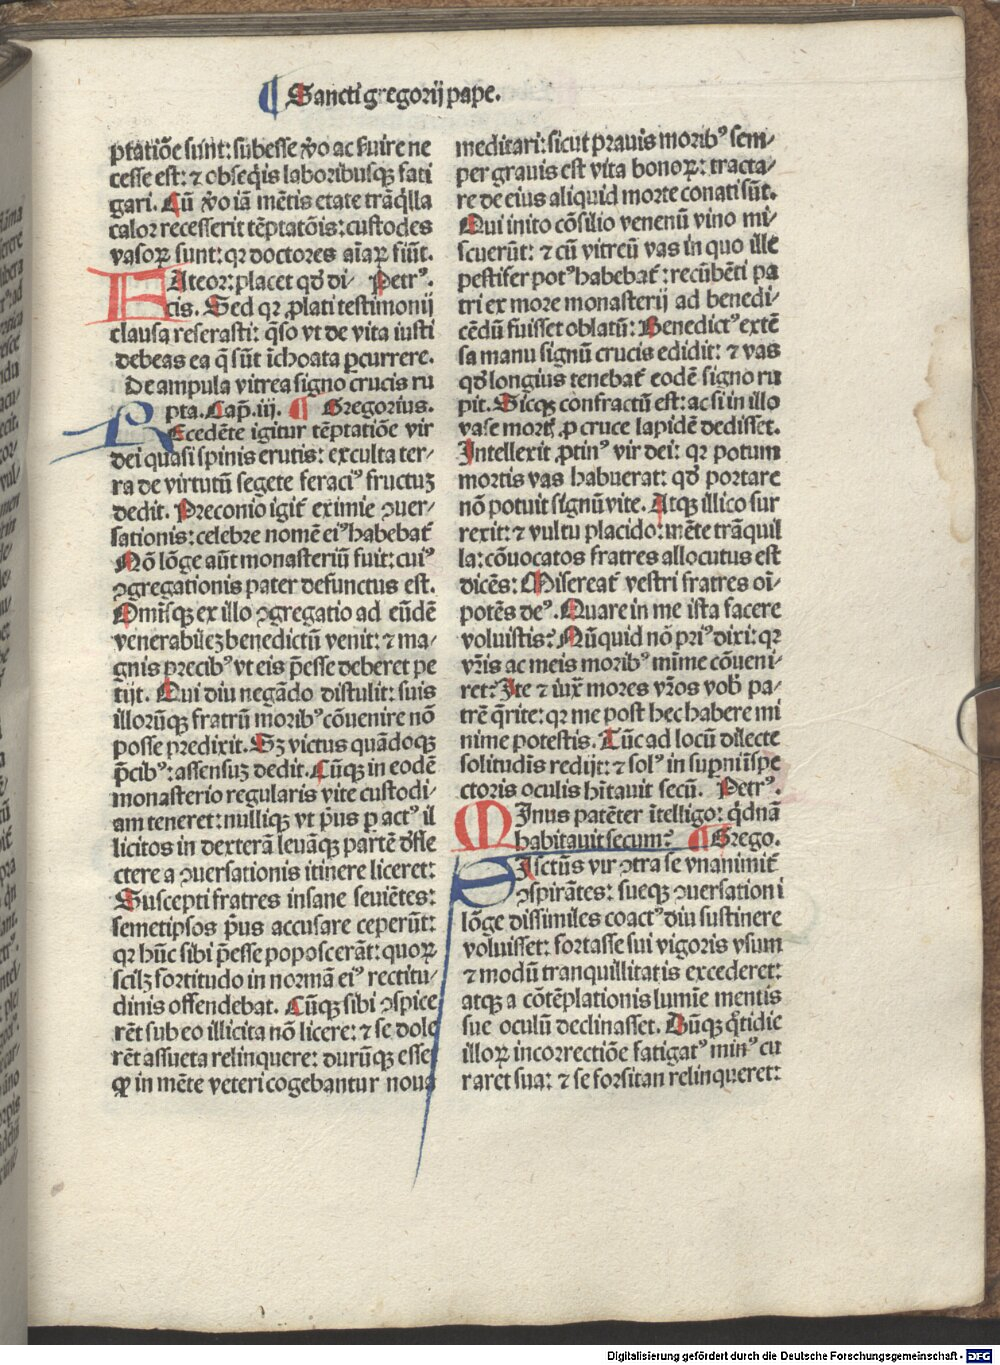 ¶ Sancti gregorij pape.
ptatiōe sunt: subesse ꝟo ac ẜuire ne
cesse est: ⁊ obseq̄is laboribusqꝫ fati
gari. Cū ꝟo iā mētis etate trāq̇lla
calor recesserit tēptatōis: custodes
vasoꝝ sunt: qꝛ doctores aīaꝝ fiūt.
FAteor: placet qḋ di Petrꝰ.
cis. Sed qꝛ ꝓlati testimonij
clausa reserasti: q̄so vt de vita iusti
debeas ea q̄ sūt īchoata ꝑcurrere.
De ampula vitrea signo crucis ru
pta. Cap̄. iij. ¶ Gregorius.
REcedēte igitur tēptatiōe vir
dei quasi spinis erutis: exculta ter⸗
ra de virtutū segete feraciꝰ fructuꝫ
dedit. Preconio igit̄ eximie ꝯuer⸗
sationis: celebre nomē eiꝰ habebat̄
Nō lōge aūt monasteriū fuit: cuiꝰ
ꝯgregationis pater defunctus est.
Omīsqꝫ ex illo ꝯgregatio ad eūdē
venerabilēꝫ benedictū venit: ⁊ ma⸗
gnis precibꝰ vt eis p̄esse deberet pe
tijt. Qui diu negādo distulit: suis
illorūqꝫ fratrū moribꝰ cōuenire nō
posse predixit. Sꝫ victus quādoqꝫ
p̄cibꝰ: assensuꝫ dedit. Cūqꝫ in eodē
monasterio regularis vite custodi⸗
am teneret: nulliqꝫ vt p̄us ꝑ actꝰ il
licitos in dexterā leuāqꝫ partē ḋfle
ctere a ꝯuersationis itinere liceret:
Suscepti fratres insane seuiētes:
semetipsos p̄us accusare ceperūt:
qꝛ hūc sibi p̄esse poposcerāt: quoꝝ
scilꝫ fortitudo in normā eiꝰ rectitu⸗
dinis offendebat. Cūqꝫ sibi ꝯspice
rēt sub eo illicita nō licere: ⁊ se dole
rēt assueta relinquere: durūqꝫ esset
ꝙ in mēte veteri cogebantur noua
meditari: sicut prauis moribꝰ sem⸗
per grauis est vita bonoꝝ: tracta⸗
re de eius aliquid morte conati sūt.
Qui inito cōsilio venenū vino mi⸗
scuerūt: ⁊ cū vitreū vas in quo ille
pestifer potꝰ habebat̄: recūbēti pa
tri ex more monasterij ad benedi⸗
cēdū fuisset oblatū: Benedictꝰ extē
sa manu signū crucis edidit: ⁊ vas
qḋ longius tenebat̄ eodē signo ru
pit. Sicqꝫ confractū est: ac si in illo
vase mortꝭ ꝓ cruce lapidē dedisset.
Intellexit ꝓtinꝰ vir dei: qꝛ potum
mortis vas habuerat: qḋ portare
nō potuit signū vite. Atqꝫ illico sur
rexit: ⁊ vultu placido: mēte trāquil
la: cōuocatos fratres allocutus est
dicēs: Misereat̄ vestri fratres oī⸗
potēs deꝰ. Quare in me ista facere
voluistis? Nūquid nō priꝰ dixi: qꝛ
vr̄is ac meis moribꝰ mīme cōueni⸗
ret? Ite ⁊ iux̄ mores vr̄os vob̄ pa⸗
trē q̄rite: qꝛ me post hec habere mi
nime potestis. Tūc ad locū dilecte
solitudīs redijt: ⁊ solꝰ in suꝑni īspe
ctoris oculis hītauit secū. Petrꝰ.
MInus patēter ītelligo: q̇dnā
habitauit secum? ¶ Grego.
SI sctūs vir ꝯtra se vnanimit̄
ꝯspirātes: sueqꝫ ꝯuersationi
lōge dissimiles coactꝰ diu sustinere
voluisset: fortasse sui vigoris vsum
⁊ modū tranquillitatis excederet:
atqꝫ a cōtēplationis lumīe mentis
sue oculū declinasset. Dūqꝫ q̇tidie
illoꝝ incorrectiōe fatigatꝰ minꝰ cu
raret sua: ⁊ se forsitan relinqueret:
Digitalisierung gefördert durch die Deutsche Forschungsgemeinschaft - DFG